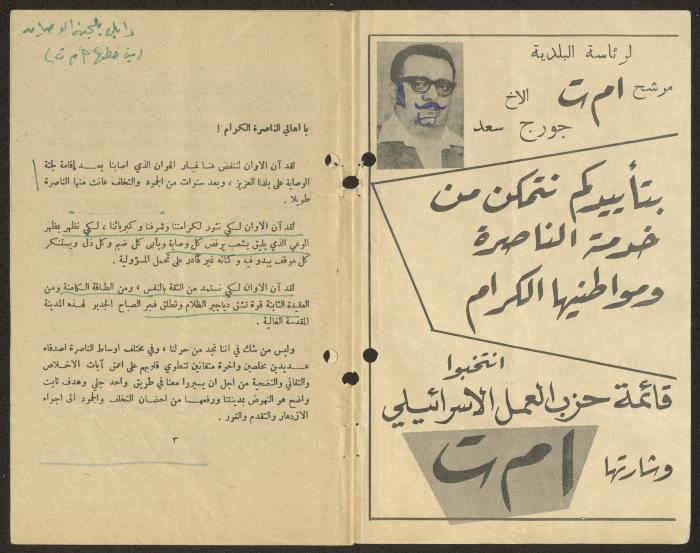 لرئاسة البلدية
مرشح ا م ت الاخ
جورج سعد
بتأييدكم نتمكن من
خدمة الناصرة
ومواطنيها الكرام
انتخبوا
قائمة حزب العمل الاسرائيلي
وشارتها ا م ت
يا اهالي الناصرة الكرام !
لقد آن الاوان لننفض عنا غبار الهوان الذي اصابنا بعد إقامة لجنة
الوصاية على بلدنا العزيز ، وبعد سنوات من الجمود والتخلف عانت منها الناصرة
طويلا .
لقد آن الاوان لكي نثور لكرامتنا وشرفنا وكبريائنا ، لكي نظهر بمظهر
الوعي الذي يليق بشعب يرفض كل وصاية ويأبى كل ضيم وكل ذل ويستنكر
كل موقف يبدو فيه وكأنه غير قادر على تحمل المسؤولية .
لقد آن الاوان لكي نستمد من الثقة بالنفس ، ومن الطاقة الكامنة ومن
العقيدة الثابتة قوة تشق دياجير الظلام وتطلق فجر الصباح الجديد لهذه المدينة
المقدسة الغالية .
وليس من شك في اننا نجد من حولنا ، وفي مختلف اوساط الناصرة اصدقاء
عديدين مخلصين واخوة متفانين تنطوي قلوبهم على اعمق آيات الاخلاص
والتفاني والتضحية من اجل ان يسيروا معنا في طريق واحد جلي وهدف ثابت
واضح هو النهوض بمدينتنا ورفعها من احضان التخلف والجمود الى اجواء
الازدهار والتقدم والنور .
٣